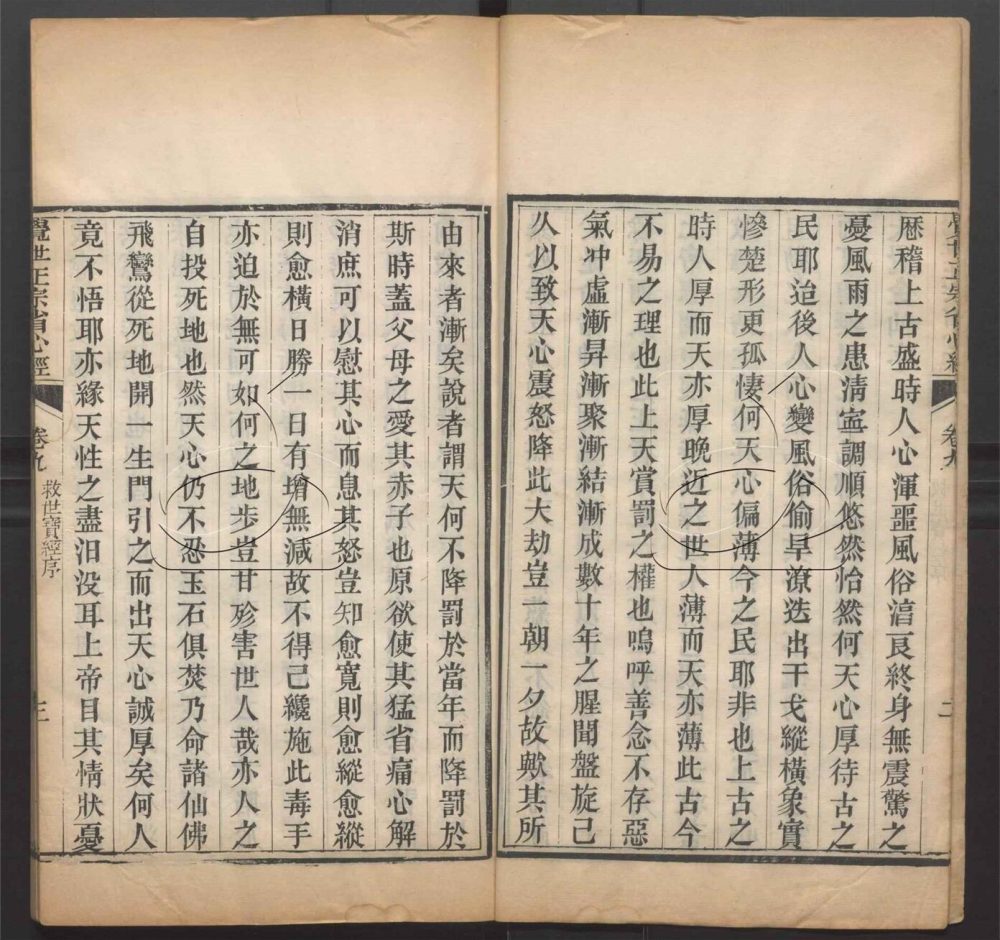 歷稽上古盛時人心渾噩風俗湻良終身無震驚之
憂風雨之患清寍調順悠然怡然何天心厚待古之
民耶迨後人心變風俗偷旱潦迭出干戈縱橫象實
慘楚形更孤悽何天心偏薄今之民耶非也上古之
時人厚而天亦厚晚近之世人薄而天亦薄此古今
不易之理也此上天賞罰之權也嗚呼善念不存惡
氣冲虛漸昇漸聚漸結漸成數十年之腥聞盤旋已
久以致天心震怒降此大劫豈一朝一夕故歟其所
由來者漸矣說者謂天何不降罰於當年而降罰於
斯時蓋父母之愛其赤子也原欲使其猛省痛心解
消庶可以慰其心而息其怒豈知愈寬則愈縱愈縱
則愈橫日勝一日有增無減故不得已纔施此毒手
亦迫於無可如何之地步豈甘殄害世人哉亦人之
自投死地也然天心仍不忍玉石俱焚乃命諸仙佛
飛鸞從死地開一生門引之而出天心誠厚矣何人
竟不悟耶亦緣天性之盡汩沒耳上帝目其情狀憂
覺世正宗省心經
卷九
救世寶經序
三